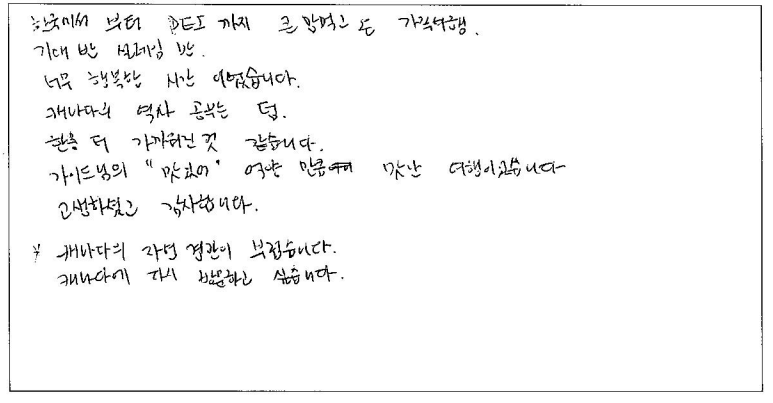 한국에서 부터 PEI 까지 큰 맘먹고 온 가족여행.
기대 반 설레임 반.
너무 행복한 시간 이었습니다.
캐나다의 역사 공부는 덤.
한층 더 가까워진것 같습니다.
가이드님의 "맛있어" 억양 만큼 맛난 여행이었습니다
고생하셨고 감사합니다.
* 캐나다의 자연 경관이 부럽습니다.
캐나다에 다시 방문하고 싶습니다.